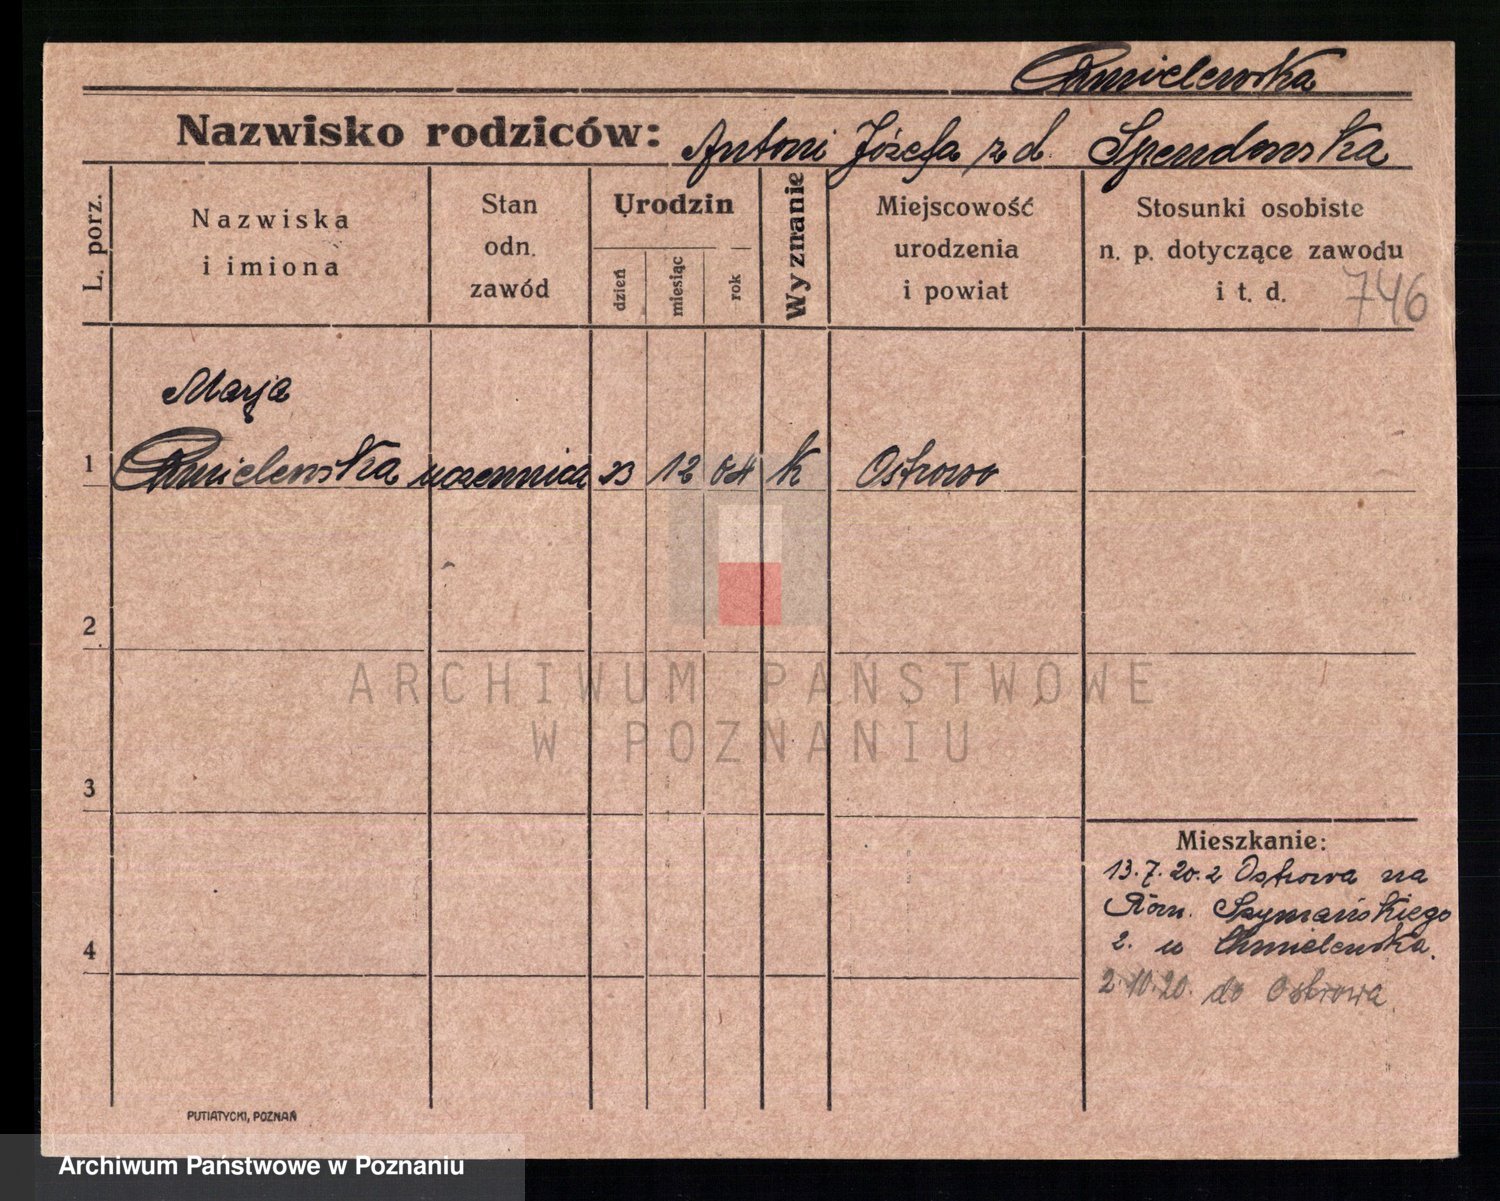 Chmielewska
Nazwisko rodziców: Antoni Józefa z d. Spendowska
L. porz.
Nazwiska
i imiona
Stan
odn.
zawód
Urodzin
dzień
miesiąc
rok
Wyznanie
Miejscowość
urodzenia
i powiat
Stosunki osobiste
n. p. dotyczące zawodu
i t. d.
746
Marja
1 Chmielewska uczennica 23 12 04 k Ostrowo
2
ARCHIWUM PAŃSTWOWE
W POZNANIU
3
Mieszkanie:
13.7.20. z Ostrowa na
Rom. Szymańskiego
2. u Chmielewska.
4
2.10.20. do Ostrowa
PUTIATYCKI, POZNAŃ
Archiwum Państwowe w Poznaniu